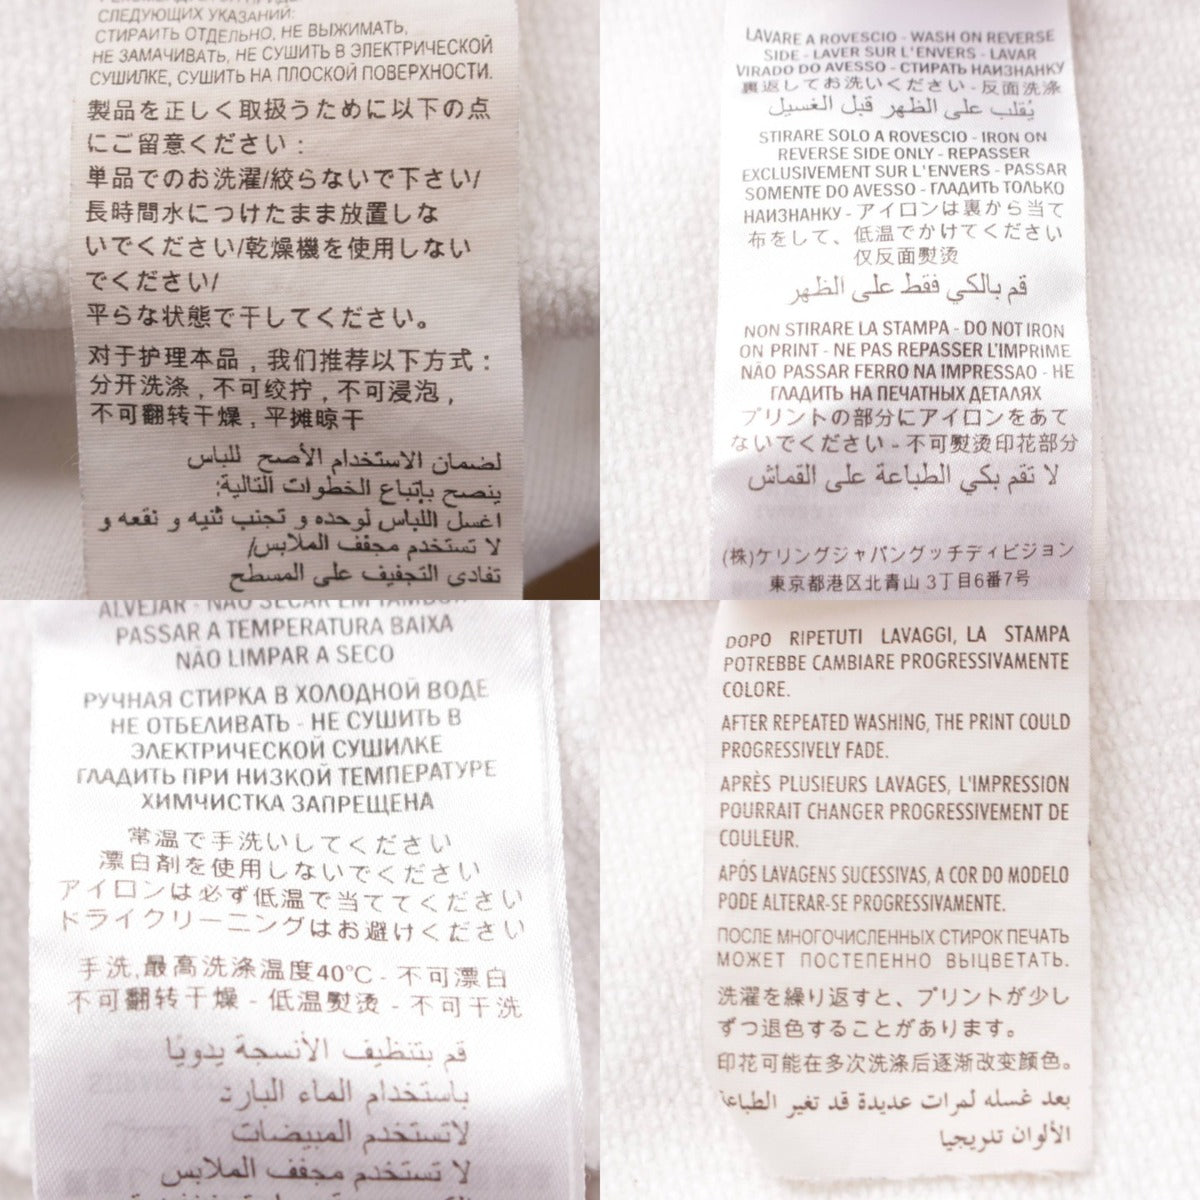 СЛЕДУЮЩИХ УКАЗАНИЙ:
СТИРАИТЬ ОТДЕЛЬНО, НЕ ВЫЖИМАТЬ,
НЕ ЗАМАЧИВАТЬ, НЕ СУШИТЬ В ЭЛЕКТРИЧЕСКОЙ
СУШИЛКЕ, СУШИТЬ НА ПЛОСКОЙ ПОВЕРХНОСТИ.
製品を正しく取扱うために以下の点
にご留意ください：
単品でのお洗濯/絞らないで下さい/
長時間水につけたまま放置しな
いでください/乾燥機を使用しない
でください/
平らな状態で干してください。
对于护理本品，我们推荐以下方式：
分开洗涤，不可绞拧，不可浸泡，
不可翻转干燥，平摊晾干
لضمان الاستخدام الأصح للباس
ينصح بإتباع الخطوات التالية:
اغسل اللباس لوحده و تجنب ثنيه و نقعه و
لا تستخدم مجفف الملابس/
تفادى التجفيف على المسطح
LAVARE A ROVESCIO - WASH ON REVERSE
SIDE - LAVER SUR L'ENVERS - LAVAR
VIRADO DO AVESSO - СТИРАТЬ НАИЗНАНКУ
裏返してお洗いください - 反面洗涤
يُقلب على الظهر قبل الغسيل
STIRARE SOLO A ROVESCIO - IRON ON
REVERSE SIDE ONLY - REPASSER
EXCLUSIVEMENT SUR L'ENVERS - PASSAR
SOMENTE DO AVESSO - ГЛАДИТЬ ТОЛЬКО
НАИЗНАНКУ - アイロンは裏から当て
布をして、低温でかけてください
仅反面熨烫
قم بالكي فقط على الظهر
NON STIRARE LA STAMPA - DO NOT IRON
ON PRINT - NE PAS REPASSER L'IMPRIME
NÃO PASSAR FERRO NA IMPRESSAO - НЕ
ГЛАДИТЬ НА ПЕЧАТНЫХ ДЕТАЛЯХ
プリントの部分にアイロンをあて
ないでください - 不可熨烫印花部分
لا تقم بكي الطباعة على القماش
(株)ケリングジャパングッチディビジョン
東京都港区北青山 3丁目6番7号
ALVEJAR - NÃO SECAR EM TAMBOR
PASSAR A TEMPERATURA BAIXA
NÃO LIMPAR A SECO
РУЧНАЯ СТИРКА В ХОЛОДНОЙ ВОДЕ
НЕ ОТБЕЛИВАТЬ - НЕ СУШИТЬ В
ЭЛЕКТРИЧЕСКОЙ СУШИЛКЕ
ГЛАДИТЬ ПРИ НИЗКОЙ ТЕМПЕРАТУРЕ
ХИМЧИСТКА ЗАПРЕЩЕНА
常温で手洗いしてください
漂白剤を使用しないでください
アイロンは必ず低温で当ててください
ドライクリーニングはお避けください
手洗,最高洗涤温度40℃ - 不可漂白
不可翻转干燥 - 低温熨烫 - 不可干洗
قم بتنظيف الأنسجة يدويًا
باستخدام الماء البارد
لاتستخدم المبيضات
لا تستخدم مجفف الملابس
DOPO RIPETUTI LAVAGGI, LA STAMPA
POTREBBE CAMBIARE PROGRESSIVAMENTE
COLORE.
AFTER REPEATED WASHING, THE PRINT COULD
PROGRESSIVELY FADE.
APRÈS PLUSIEURS LAVAGES, L'IMPRESSION
POURRAIT CHANGER PROGRESSIVEMENT DE
COULEUR.
APÓS LAVAGENS SUCESSIVAS, A COR DO MODELO
PODE ALTERAR-SE PROGRESSIVAMENTE.
ПОСЛЕ МНОГОЧИСЛЕННЫХ СТИРОК ПЕЧАТЬ
МОЖЕТ ПОСТЕПЕННО ВЫЦВЕТАТЬ.
洗濯を繰り返すと、プリントが少し
ずつ退色することがあります。
印花可能在多次洗涤后逐渐改变颜色。
بعد غسله لمرات عديدة قد تغير الطباعة
الألوان تدريجيا